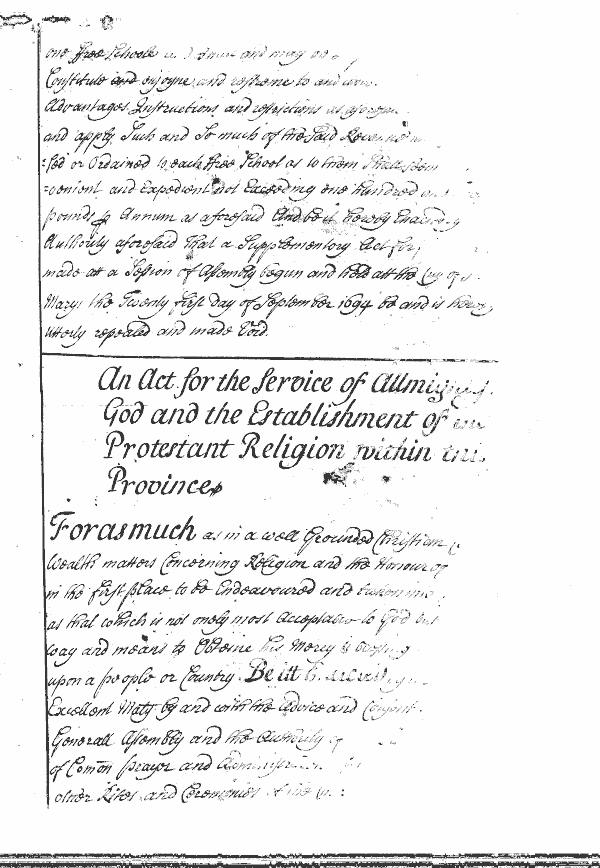 one free Schoole and may be
Constitute and enjoyne and restreine to and
Advantages Instructions and restrictions as aforesa
and apply Such and So much of the Said Revenue
:sed or Ordained to each free School as to them Shall seem
:venient and Expedient not Exceeding one hundred and
pounds p Annum as aforesaid And be it hereby Enacted by
Authority aforesaid That a Supplementory Act for
made at a Session of Assembly begun and held att the City of S
Marys the Twenty first day of September 1694 be and is hereby
utterly repealed and made Void.
An Act for the Service of Allmighty
God and the Establishment of the
Protestant Religion within this
Province
Forasmuch as in a well Grounded Christian C
Wealth matters Concerning Religion and the Honour of
in the first place to be Endeavoured and taken into
as that which is not onely most Acceptable to God but
way and means to Obteine his Mercy &
upon a people or Country Be itt
Excellent Maty by and with the Advice and Consent
Generall Assembly and the Authority of
of Comon prayer and Administra
other Rites and Ceremonies of the